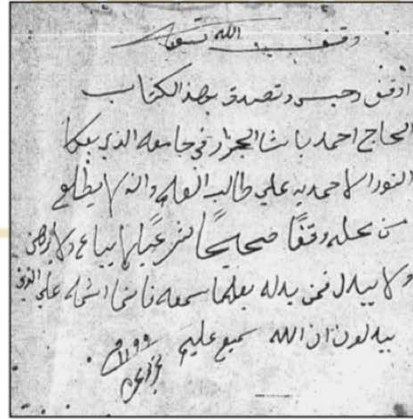 وقف لله تعالى
اوقف وحبس وتصدق بهذا الكتاب
الحاج احمد باشا الجزار في جامعه الذي بعكا
النور الاحمديه على طالب العلم وانه لا يطلع
من محله وقفا صحيحا شرعيا لا يباع ولا يرهن
ولا يبدل فمن بدله بعدما سمعه فانما اثمه على الذين
يبدلونه ان الله سميع عليم
١١٩٩